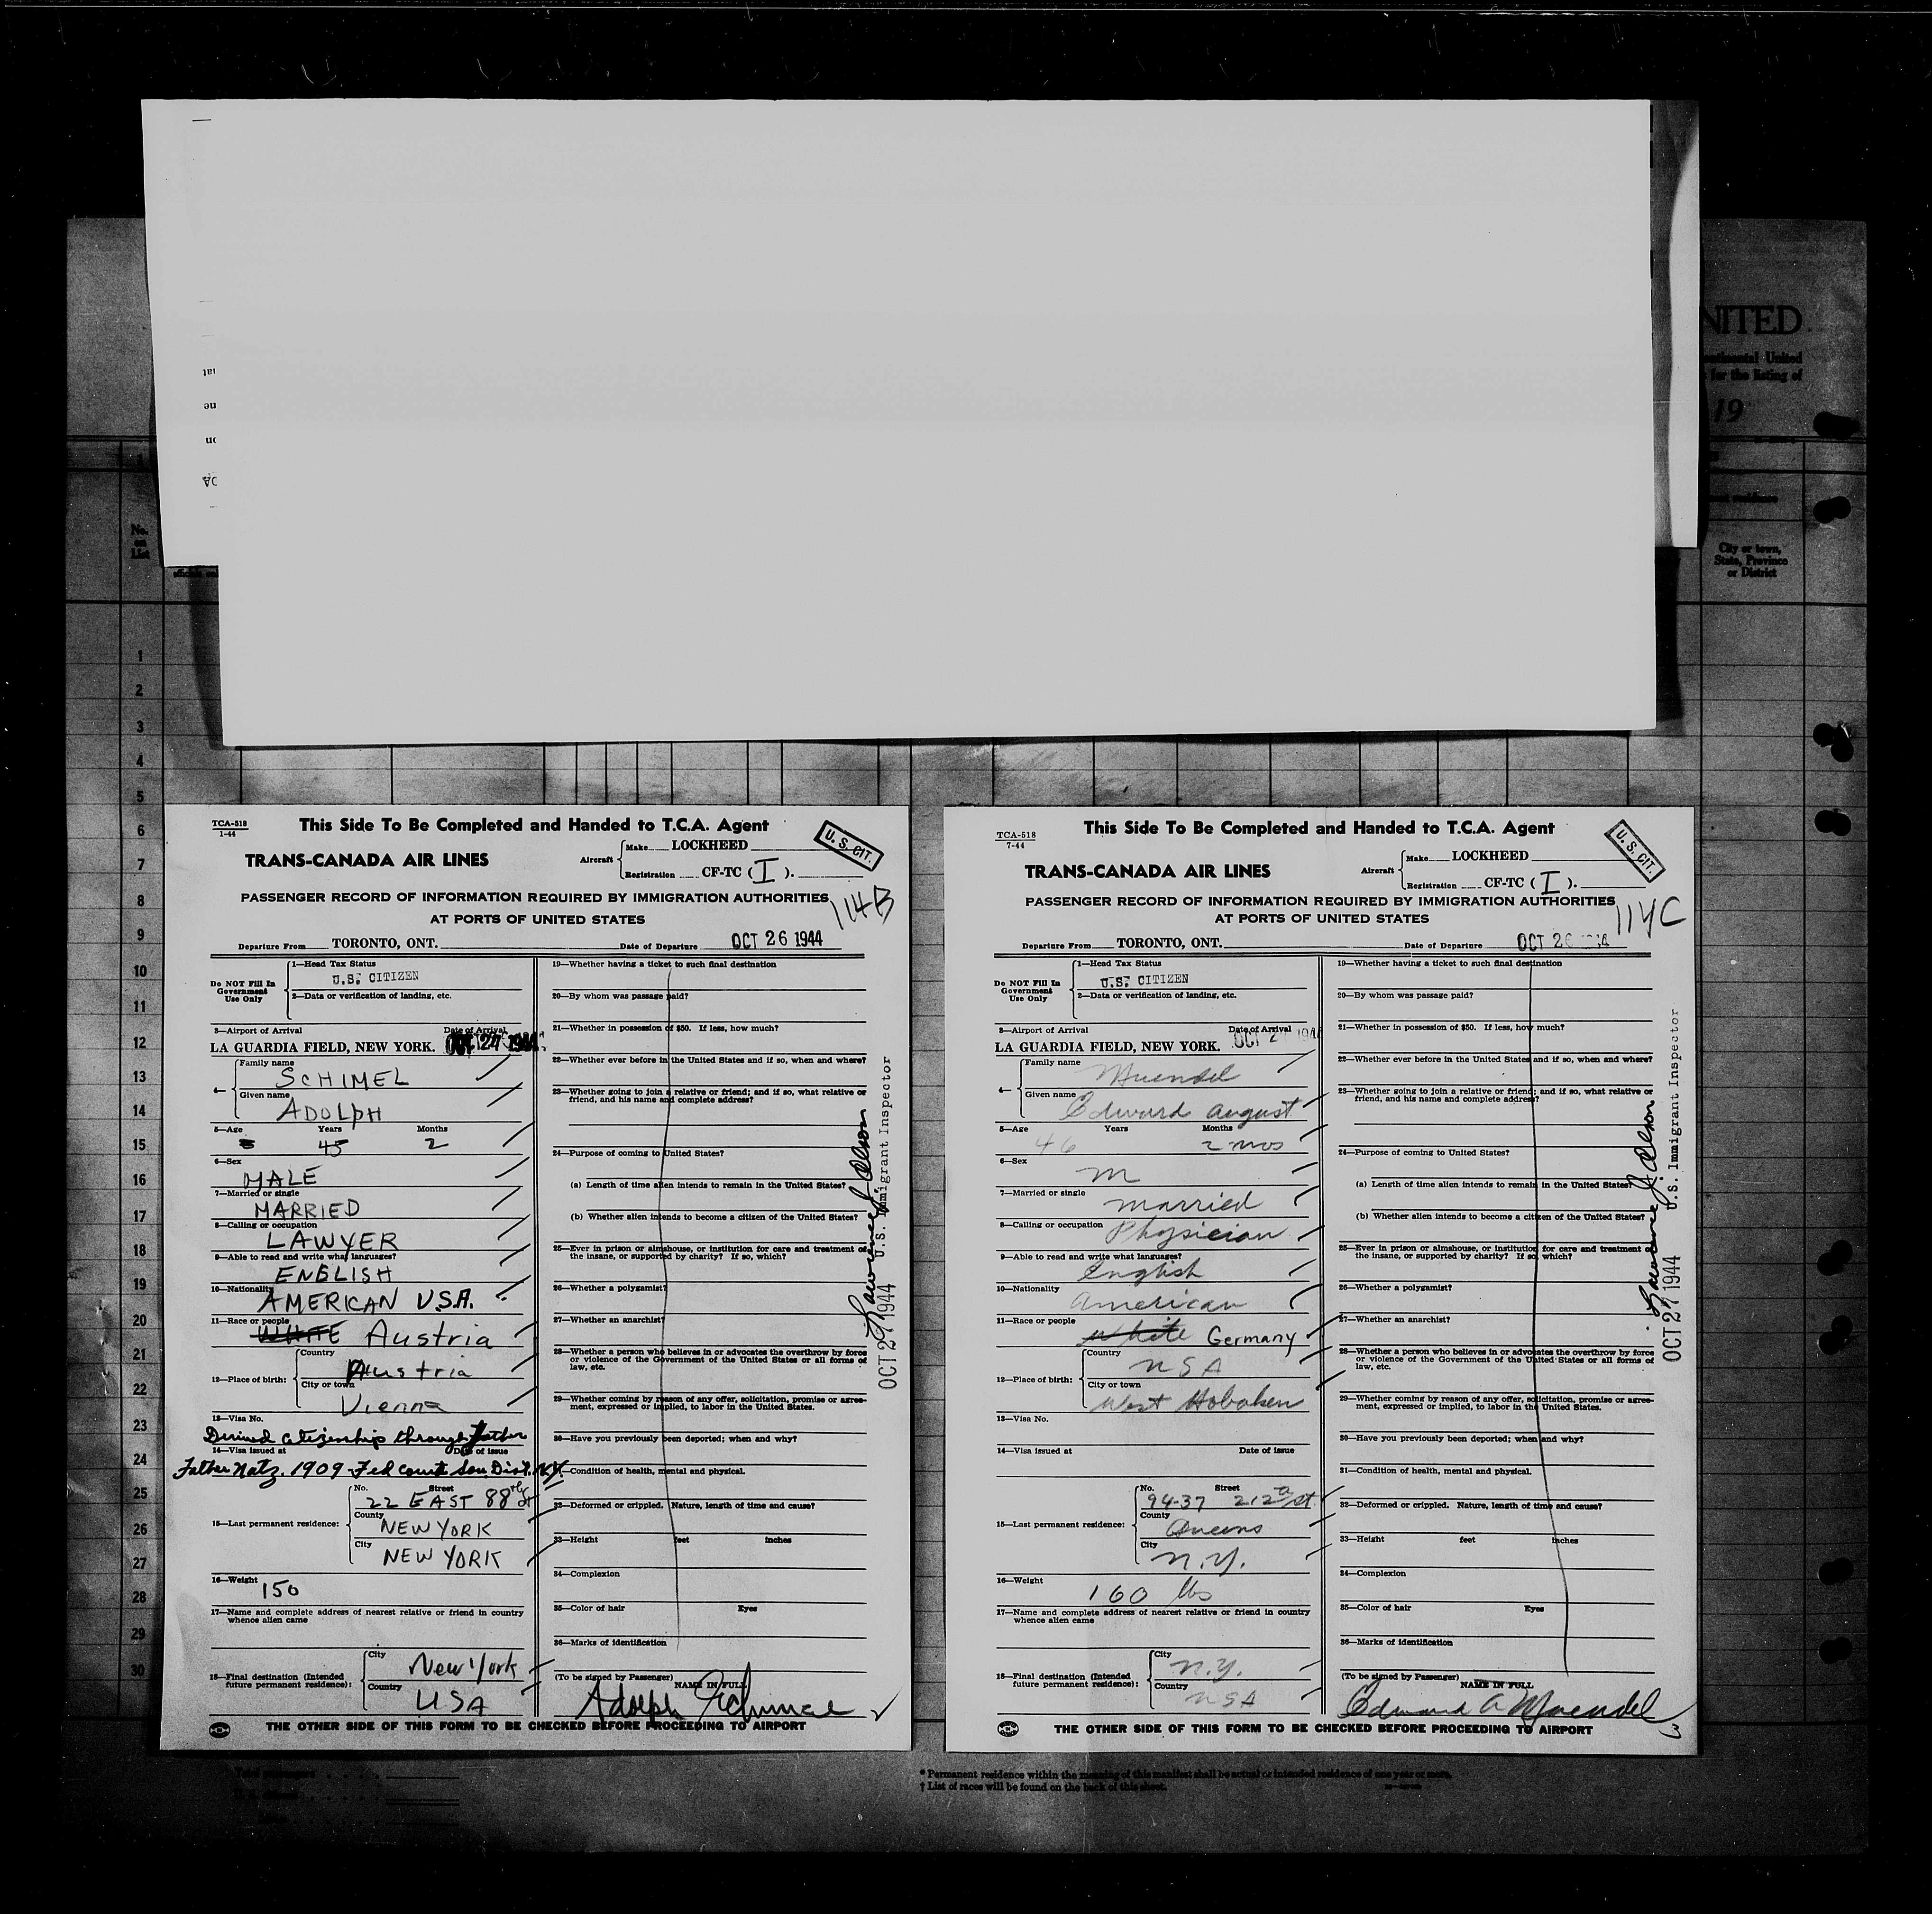 NITED
ontinental United
for the listing of
19
City or town,
State, Province
or District
No.
1
2
3
4
5
6
7
8
9
10
11
12
13
14
15
16
17
18
19
20
21
22
23
24
25
26
27
28
29
30
TCA-518
1-44
This Side To Be Completed and Handed to T.C.A. Agent
U. S. CIT.
TRANS-CANADA AIR LINES
Aircraft
Make LOCKHEED
Registration CF-TC ( I ).
PASSENGER RECORD OF INFORMATION REQUIRED BY IMMIGRATION AUTHORITIES
AT PORTS OF UNITED STATES
114B
Departure From TORONTO, ONT. Date of Departure OCT 26 1944
Do NOT Fill In
Government
Use Only
1—Head Tax Status
U.S. CITIZEN
2—Data or verification of landing, etc.
3—Airport of Arrival Date of Arrival
LA GUARDIA FIELD, NEW YORK. OCT 27 1944
4—
Family name
SCHIMEL
Given name
ADOLPH
5—Age Years Months
45 2
6—Sex
MALE
7—Married or single
MARRIED
8—Calling or occupation
LAWYER
9—Able to read and write what languages?
ENGLISH
10—Nationality
AMERICAN U.S.A.
11—Race or people
WHITE Austria
12—Place of birth:
Country
Austria
City or town
Vienna
13—Visa No.
Derived citizenship through father
14—Visa issued at Date of issue
Father Natz. 1909 Fed court Sou. Dist. N.Y.
15—Last permanent residence:
No. Street
22 EAST 88th St
County
NEW YORK
City
NEW YORK
16—Weight
150
17—Name and complete address of nearest relative or friend in country
whence alien came
18—Final destination (Intended
future permanent residence):
City
New York
Country
USA
19—Whether having a ticket to such final destination
20—By whom was passage paid?
21—Whether in possession of $50. If less, how much?
22—Whether ever before in the United States and if so, when and where?
23—Whether going to join a relative or friend; and if so, what relative or
friend, and his name and complete address?
24—Purpose of coming to United States?
(a) Length of time alien intends to remain in the United States?
(b) Whether alien intends to become a citizen of the United States?
25—Ever in prison or almshouse, or institution for care and treatment of
the insane, or supported by charity? If so, which?
26—Whether a polygamist?
27—Whether an anarchist?
28—Whether a person who believes in or advocates the overthrow by force
or violence of the Government of the United States or all forms of
law, etc.
29—Whether coming by reason of any offer, solicitation, promise or agree-
ment, expressed or implied, to labor in the United States.
30—Have you previously been deported; when and why?
31—Condition of health, mental and physical.
32—Deformed or crippled. Nature, length of time and cause?
33—Height feet inches
34—Complexion
35—Color of hair Eyes
36—Marks of identification
(To be signed by Passenger) NAME IN FULL
Adolph Schimel
OCT 27 1944 U.S. Immigrant Inspector
THE OTHER SIDE OF THIS FORM TO BE CHECKED BEFORE PROCEEDING TO AIRPORT
TCA-518
7-44
This Side To Be Completed and Handed to T.C.A. Agent
U. S. CIT.
TRANS-CANADA AIR LINES
Aircraft
Make LOCKHEED
Registration CF-TC ( I ).
PASSENGER RECORD OF INFORMATION REQUIRED BY IMMIGRATION AUTHORITIES
AT PORTS OF UNITED STATES
114C
Departure From TORONTO, ONT. Date of Departure OCT 26
Do NOT Fill In
Government
Use Only
1—Head Tax Status
U.S. CITIZEN
2—Data or verification of landing, etc.
3—Airport of Arrival Date of Arrival
LA GUARDIA FIELD, NEW YORK. OCT 27 1944
4—
Family name
Muendel
Given name
Edward August
5—Age Years Months
46 2 mos
6—Sex
M
7—Married or single
married
8—Calling or occupation
Physician
9—Able to read and write what languages?
English
10—Nationality
American
11—Race or people
White Germany
12—Place of birth:
Country
USA
City or town
West Hoboken
13—Visa No.
14—Visa issued at Date of issue
15—Last permanent residence:
No. Street
94-37 212th St.
County
Queens
City
N.Y.
16—Weight
160 lbs
17—Name and complete address of nearest relative or friend in country
whence alien came
18—Final destination (Intended
future permanent residence):
City
N.Y.
Country
USA
19—Whether having a ticket to such final destination
20—By whom was passage paid?
21—Whether in possession of $50. If less, how much?
22—Whether ever before in the United States and if so, when and where?
23—Whether going to join a relative or friend; and if so, what relative or
friend, and his name and complete address?
24—Purpose of coming to United States?
(a) Length of time alien intends to remain in the United States?
(b) Whether alien intends to become a citizen of the United States?
25—Ever in prison or almshouse, or institution for care and treatment of
the insane, or supported by charity? If so, which?
26—Whether a polygamist?
27—Whether an anarchist?
28—Whether a person who believes in or advocates the overthrow by force
or violence of the Government of the United States or all forms of
law, etc.
29—Whether coming by reason of any offer, solicitation, promise or agree-
ment, expressed or implied, to labor in the United States.
30—Have you previously been deported; when and why?
31—Condition of health, mental and physical.
32—Deformed or crippled. Nature, length of time and cause?
33—Height feet inches
34—Complexion
35—Color of hair Eyes
36—Marks of identification
(To be signed by Passenger) NAME IN FULL
Edward A Muendel
OCT 27 1944 U.S. Immigrant Inspector
THE OTHER SIDE OF THIS FORM TO BE CHECKED BEFORE PROCEEDING TO AIRPORT
* Permanent residence within the meaning of this manifest shall be actual or intended residence of one year or more.
† List of races will be found on the back of this sheet.